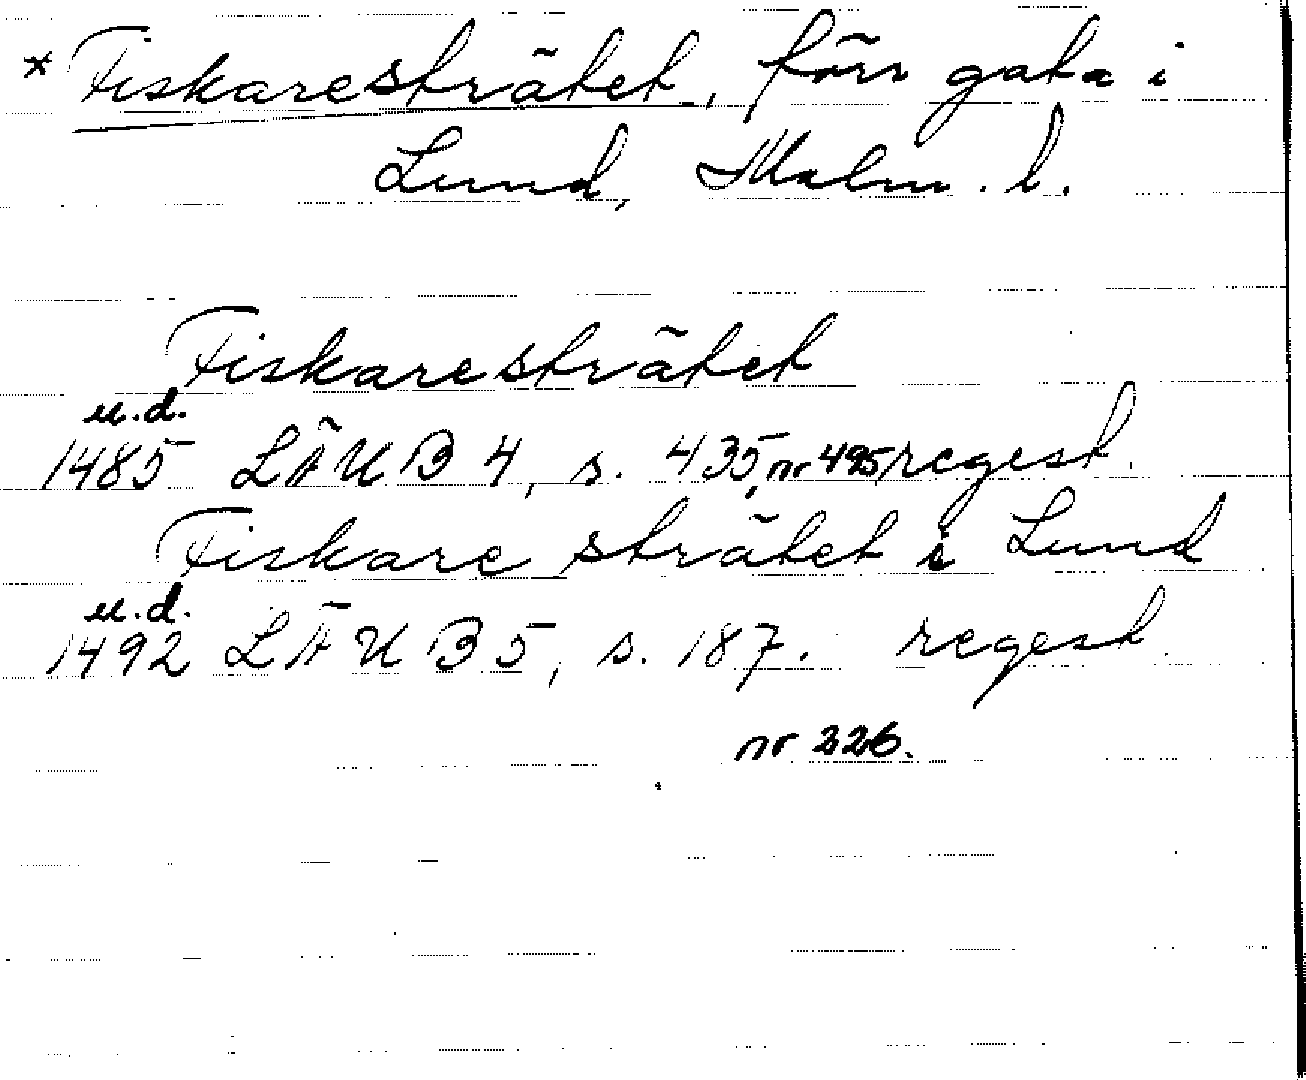 * Fiskaresträtet, förr gata i
Lund, Malm. l.
Fiskaresträtet
u.d.
1485 LÄUB 4, s. 435, nr 495, regest.
Fiskare strätet i Lund
u.d.
1492 LÄUB 5, s. 187. regest.
nr 226.